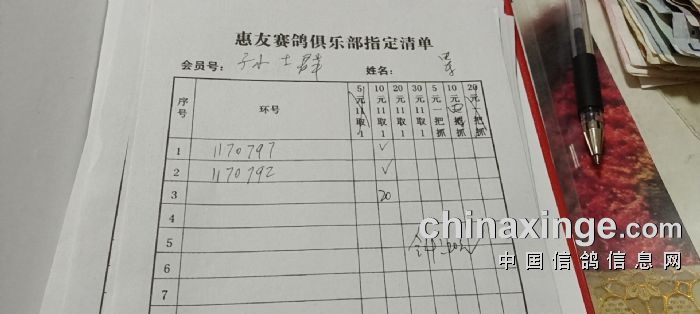 惠友赛鸽俱乐部指定清单
会员号：
姓名：
序号 环号 5元11取1 10元11取1 20元11取1 30元11取1 5元一把抓 10元一把抓 20元一把抓
1 1170797 ✓
2 1170792 ✓
3 20
4
5
6
7
chinaxinge.com
中国信鸽信息网